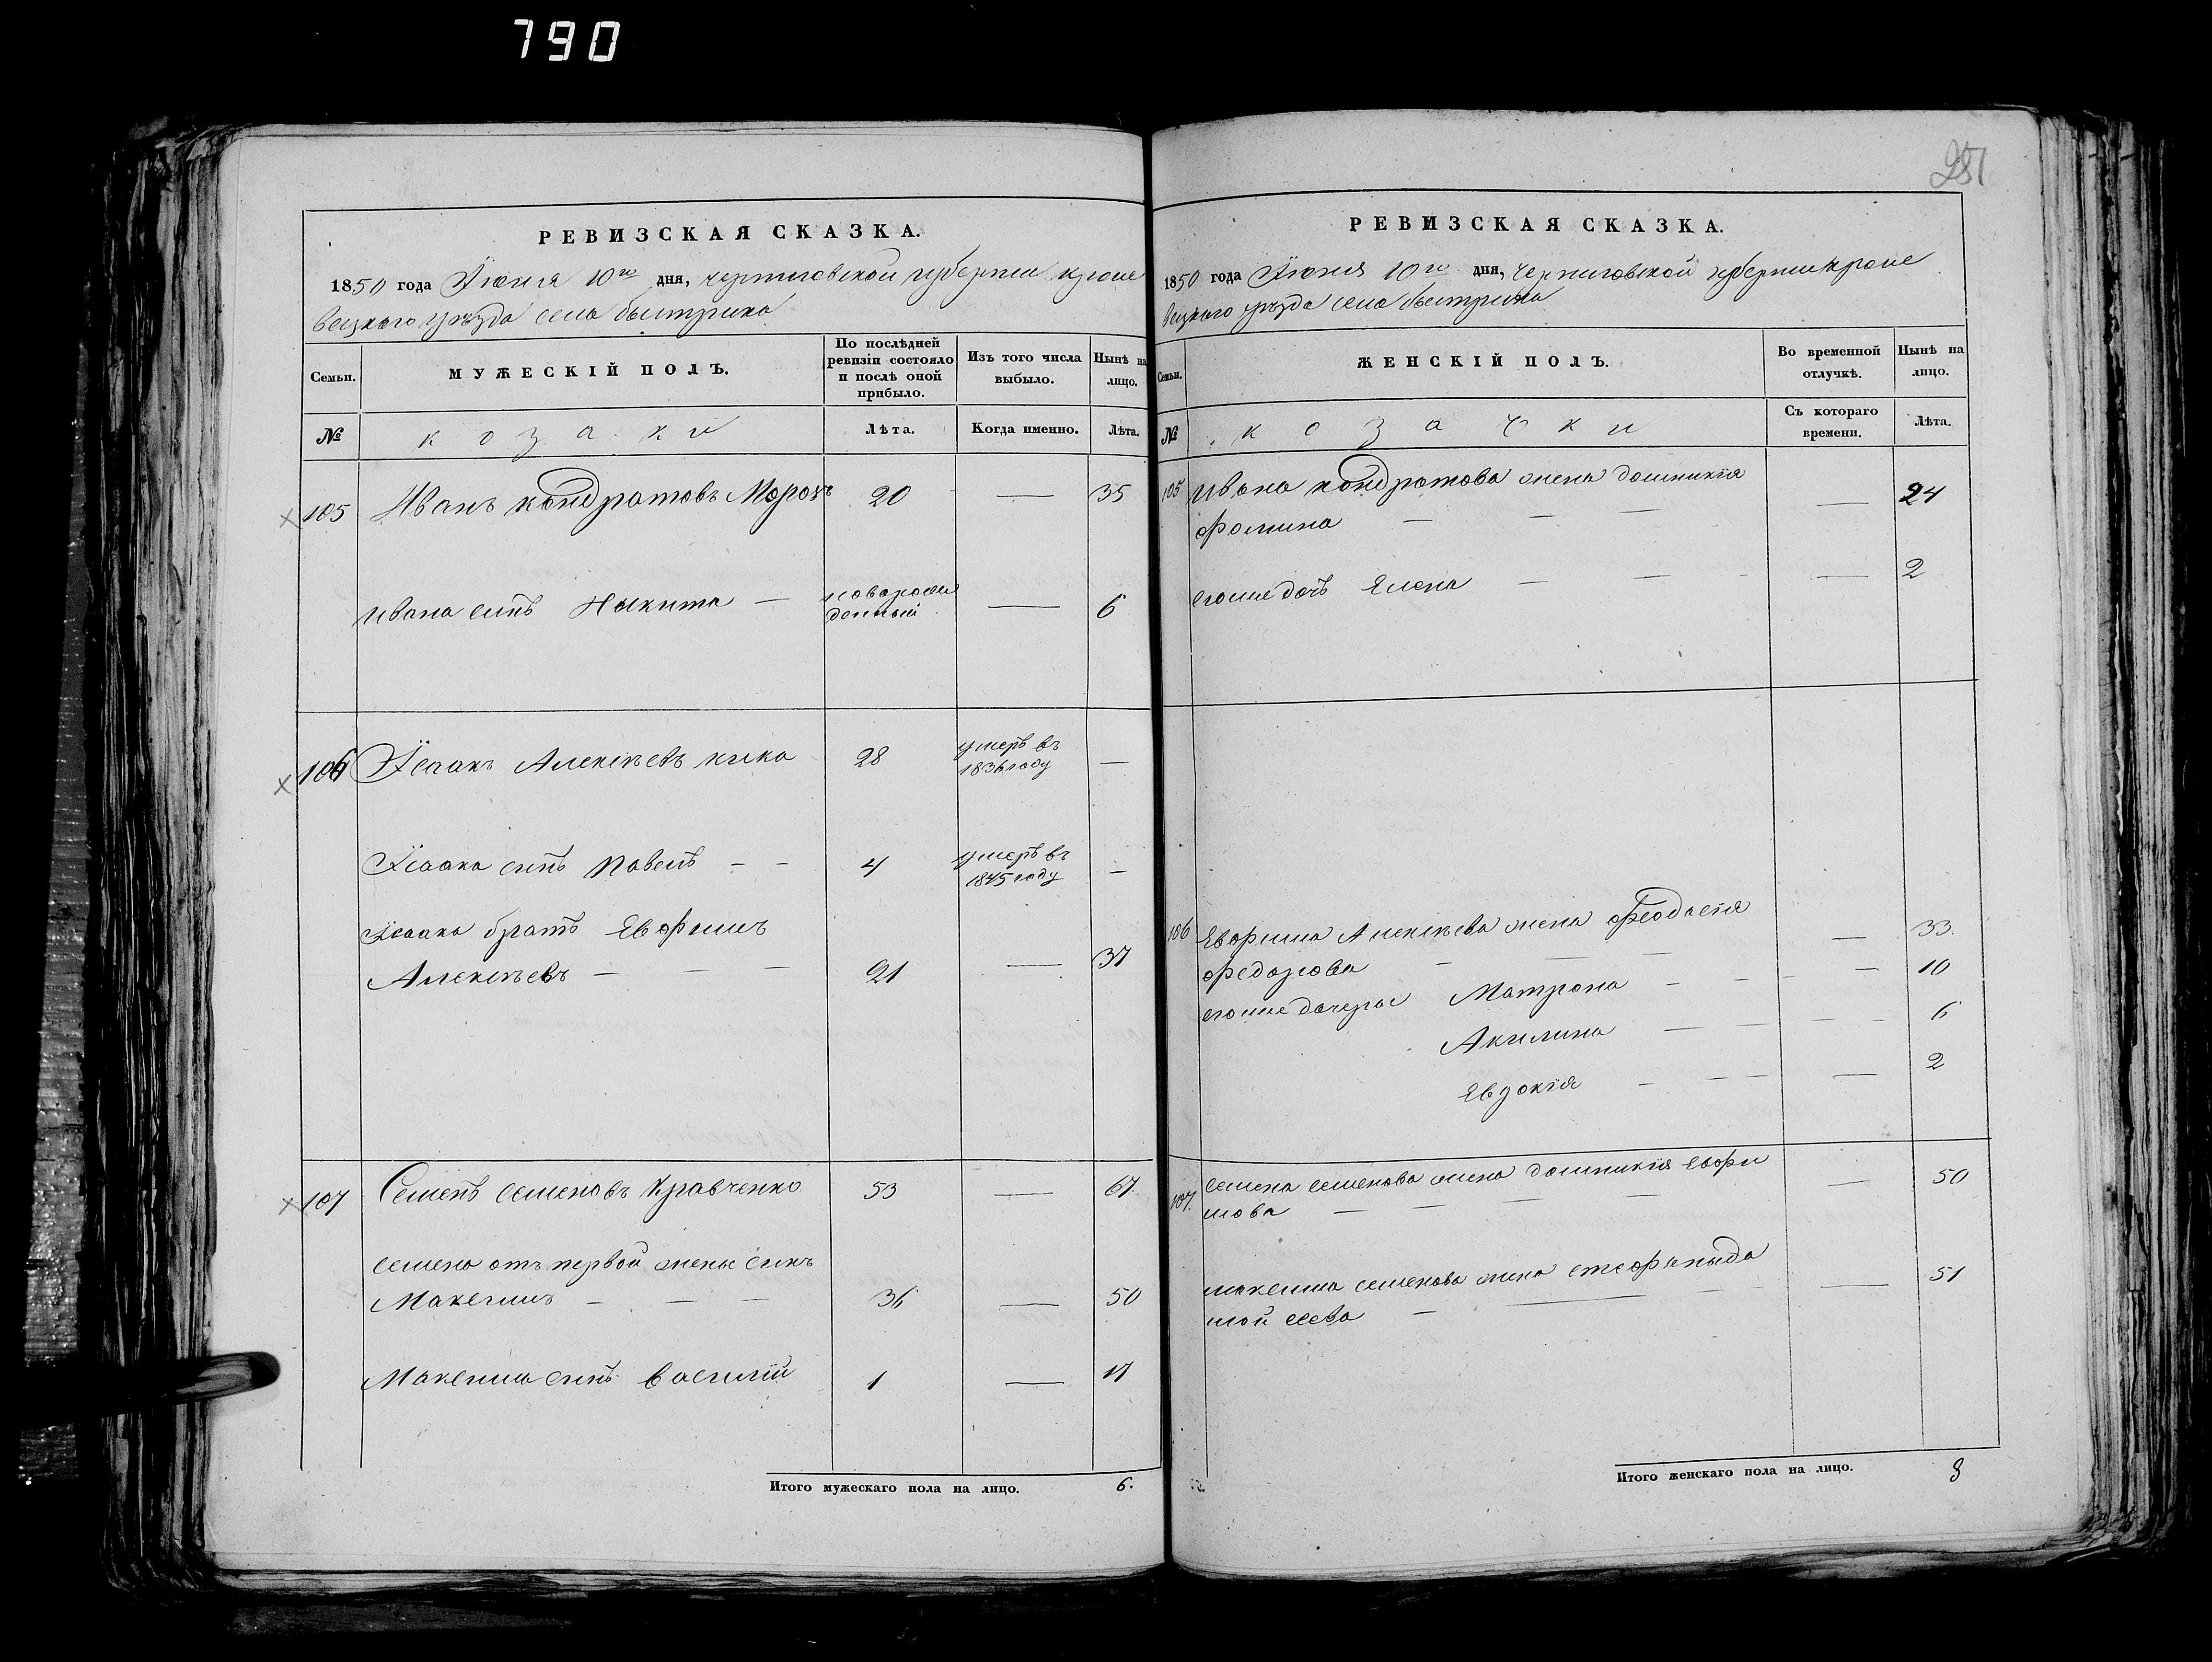 790
251
РЕВИЗСКАЯ СКАЗКА.
1850 года Іюня 10го дня, черниговской губернии кроле
вецкого уѣзда села быстрика
Семьи.
МУЖЕСКІЙ ПОЛЪ.
По послѣдней ревизіи состояло и послѣ оной прибыло.
Изъ того числа выбыло.
Нынѣ на лицо.
№
козаки
Лѣта.
Когда именно.
Лѣта.
105 Иванъ кондратовъ Морозъ 20 — 35
Ивана синъ Никита — новорож
денный — 6
106 Ісаакъ Алексѣевъ кика 28 умеръ въ
1836 году —
Ісаака синъ Павелъ - - 4 умеръ въ
1845 году —
Ісаака братъ Евфимъ
Алексѣевъ — — — 21 — 37
107 Семенъ семеновъ Кравченко 53 — 67
семена отъ первой жены синъ
Максимъ — — — 36 — 50
Максима синъ василій 1 — 17
Итого мужескаго пола на лицо. 6.
РЕВИЗСКАЯ СКАЗКА.
1850 года Іюня 10го дня, черниговской губернии кроле
вецкого уѣзда села быстрика
Семьи.
ЖЕНСКІЙ ПОЛЪ.
Во временной отлучкѣ.
Нынѣ на лицо.
№
козачки
Съ котораго времени.
Лѣта.
105 Ивана кондратова жена домникія
фомина — — — — 24
егоже дочъ Елена — — — 2
106 Евфима Алексѣева жена феодосія
федорова — — — — 33.
егоже дочеры Матрона — — — 10
Акилина — — — 6
Евдокія — — — 2
107. семена семенова жена домникія Евфи
мова — — — — — 50
максима семенова жена стефанида
мойсеева — — — — 51
Итого женскаго пола на лицо. 8